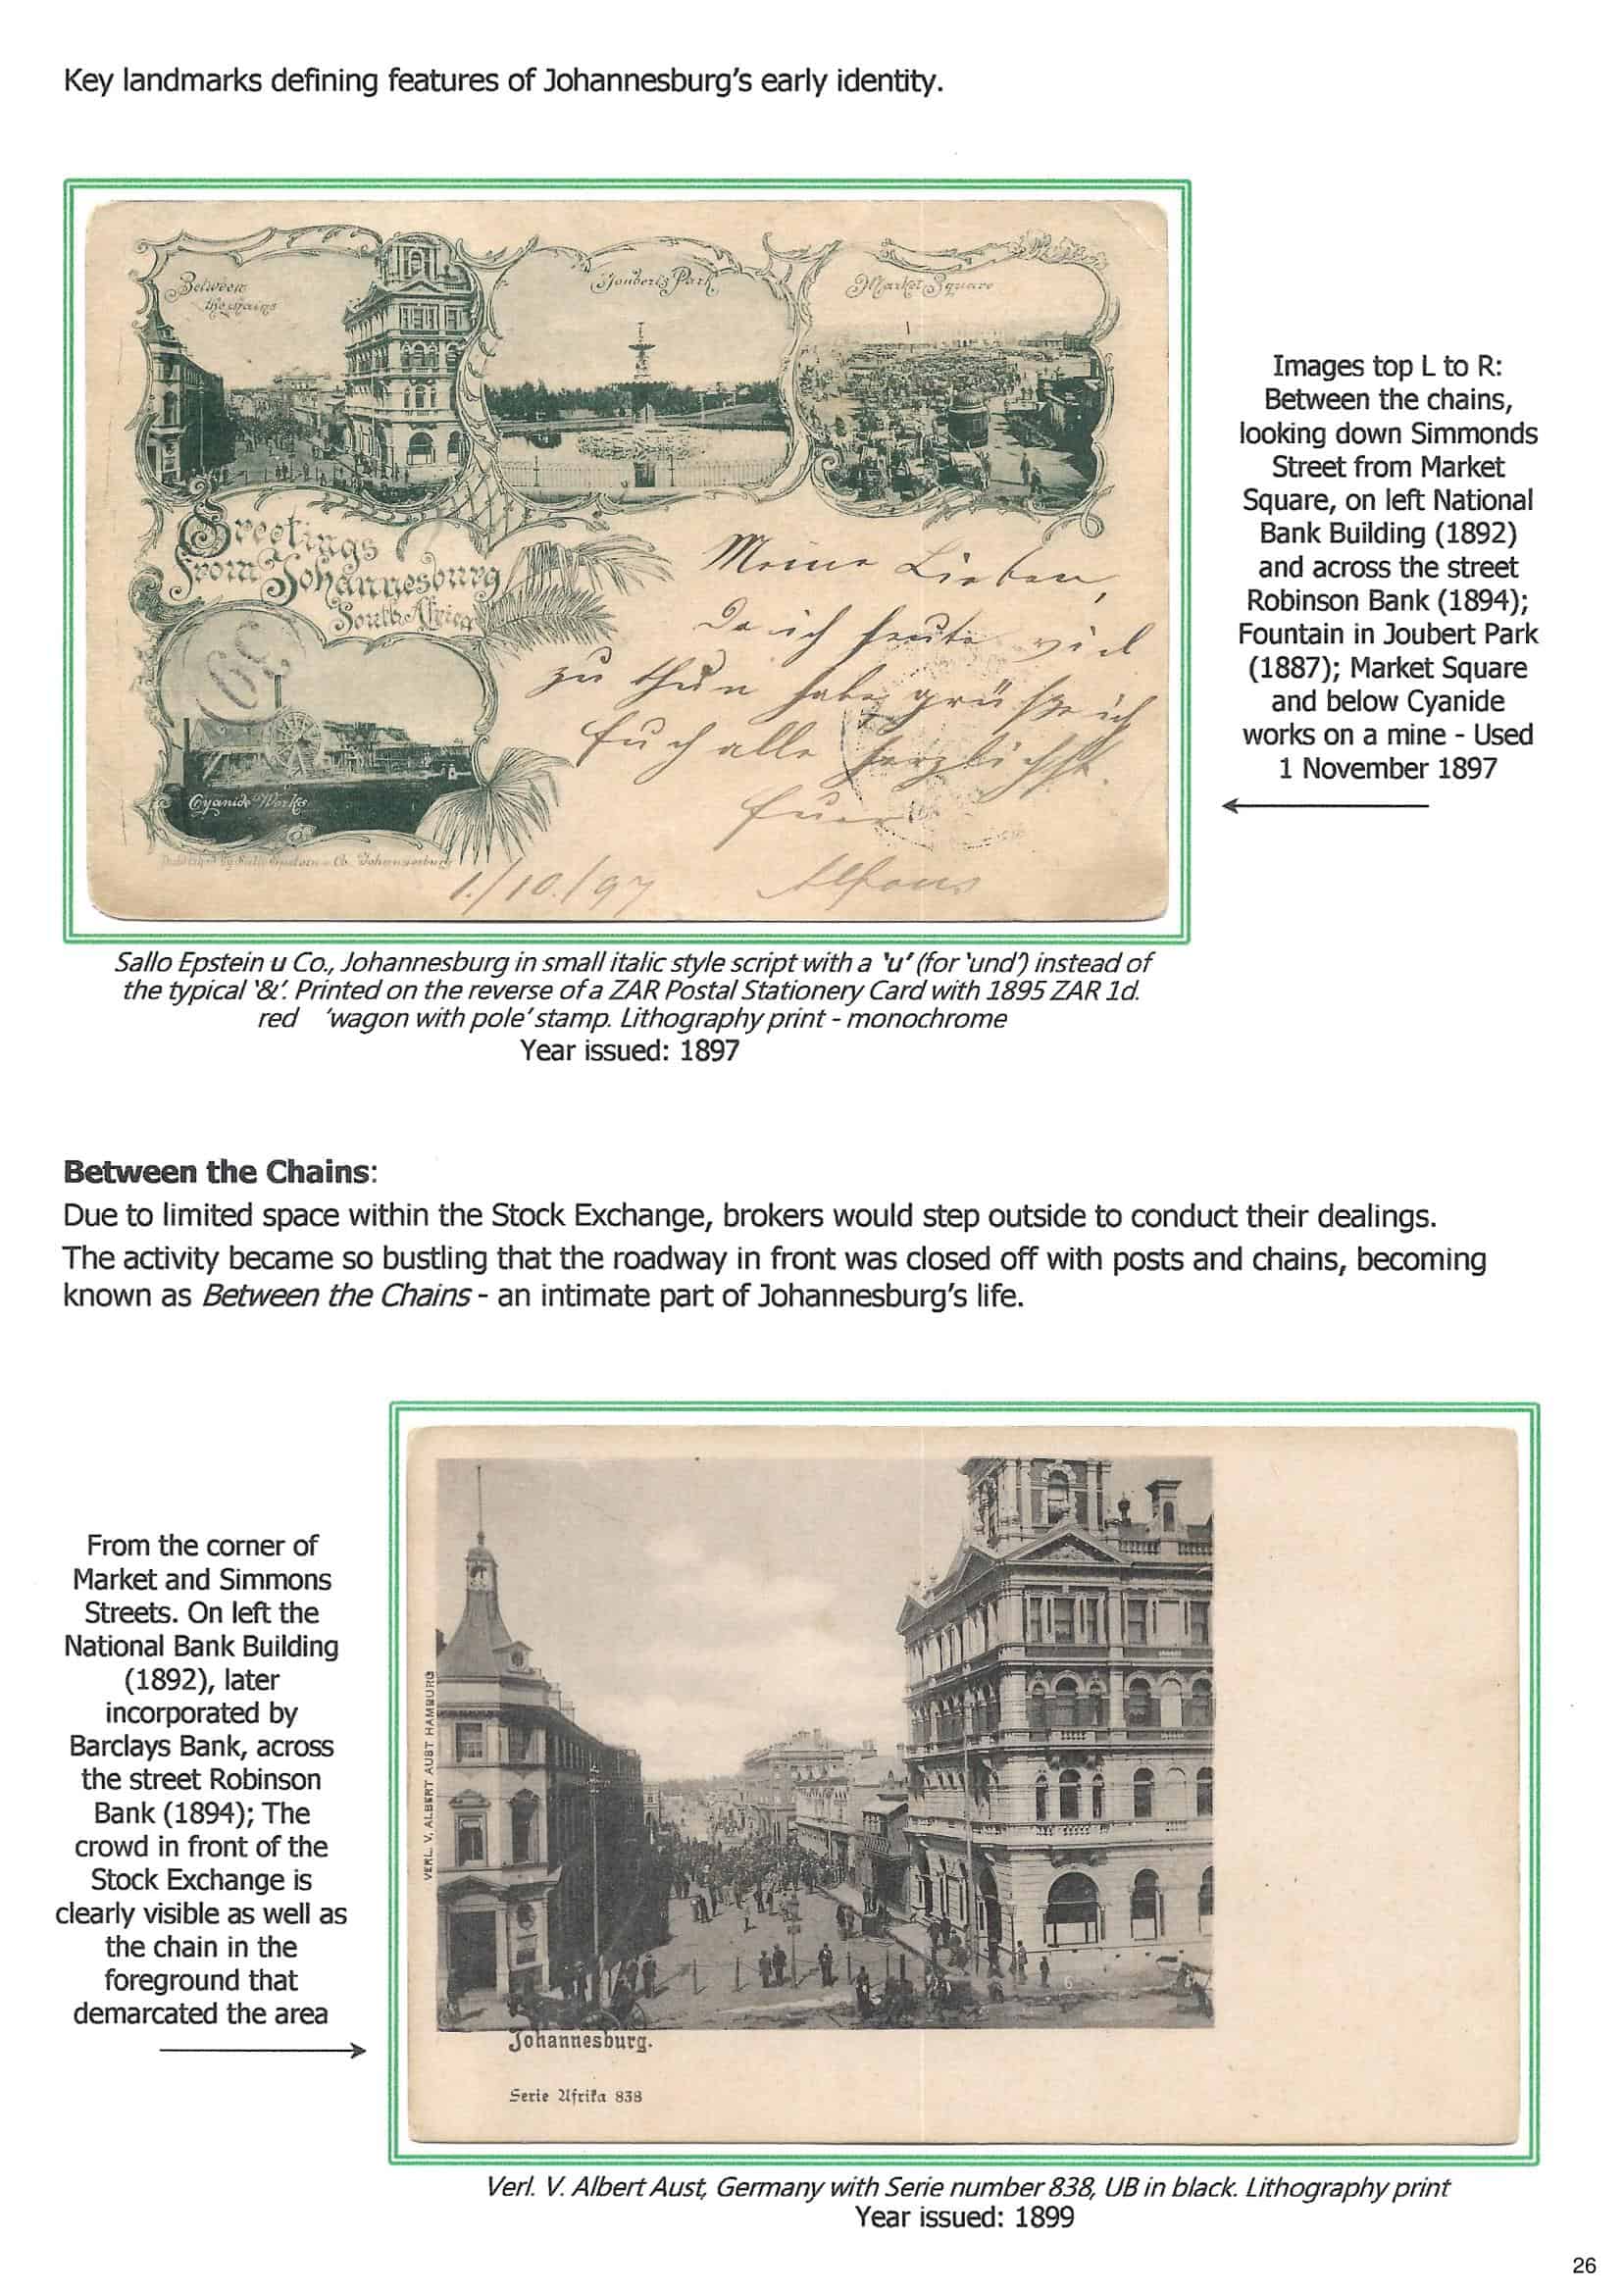 Key landmarks defining features of Johannesburg's early identity.
Between
the chains
Joubert's Park
Market Square
Greetings
from Johannesburg
South Africa
Cyanide Works
Meine Lieben,
Da ich heute viel
zu thun habe, grüße ich
Euch alle herzlichst.
Euer
Alfons
1./10./97
Images top L to R:
Between the chains,
looking down Simmonds
Street from Market
Square, on left National
Bank Building (1892)
and across the street
Robinson Bank (1894);
Fountain in Joubert Park
(1887); Market Square
and below Cyanide
works on a mine - Used
1 November 1897
Sallo Epstein u Co., Johannesburg in small italic style script with a 'u' (for 'und') instead of
the typical '&'. Printed on the reverse of a ZAR Postal Stationery Card with 1895 ZAR 1d.
red 'wagon with pole' stamp. Lithography print - monochrome
Year issued: 1897
Between the Chains:
Due to limited space within the Stock Exchange, brokers would step outside to conduct their dealings.
The activity became so bustling that the roadway in front was closed off with posts and chains, becoming
known as Between the Chains - an intimate part of Johannesburg's life.
From the corner of
Market and Simmons
Streets. On left the
National Bank Building
(1892), later
incorporated by
Barclays Bank, across
the street Robinson
Bank (1894); The
crowd in front of the
Stock Exchange is
clearly visible as well as
the chain in the
foreground that
demarcated the area
VERL. V. ALBERT AUST HAMBURG
6
Johannesburg.
Serie Afrika 838
Verl. V. Albert Aust, Germany with Serie number 838, UB in black. Lithography print
Year issued: 1899
26